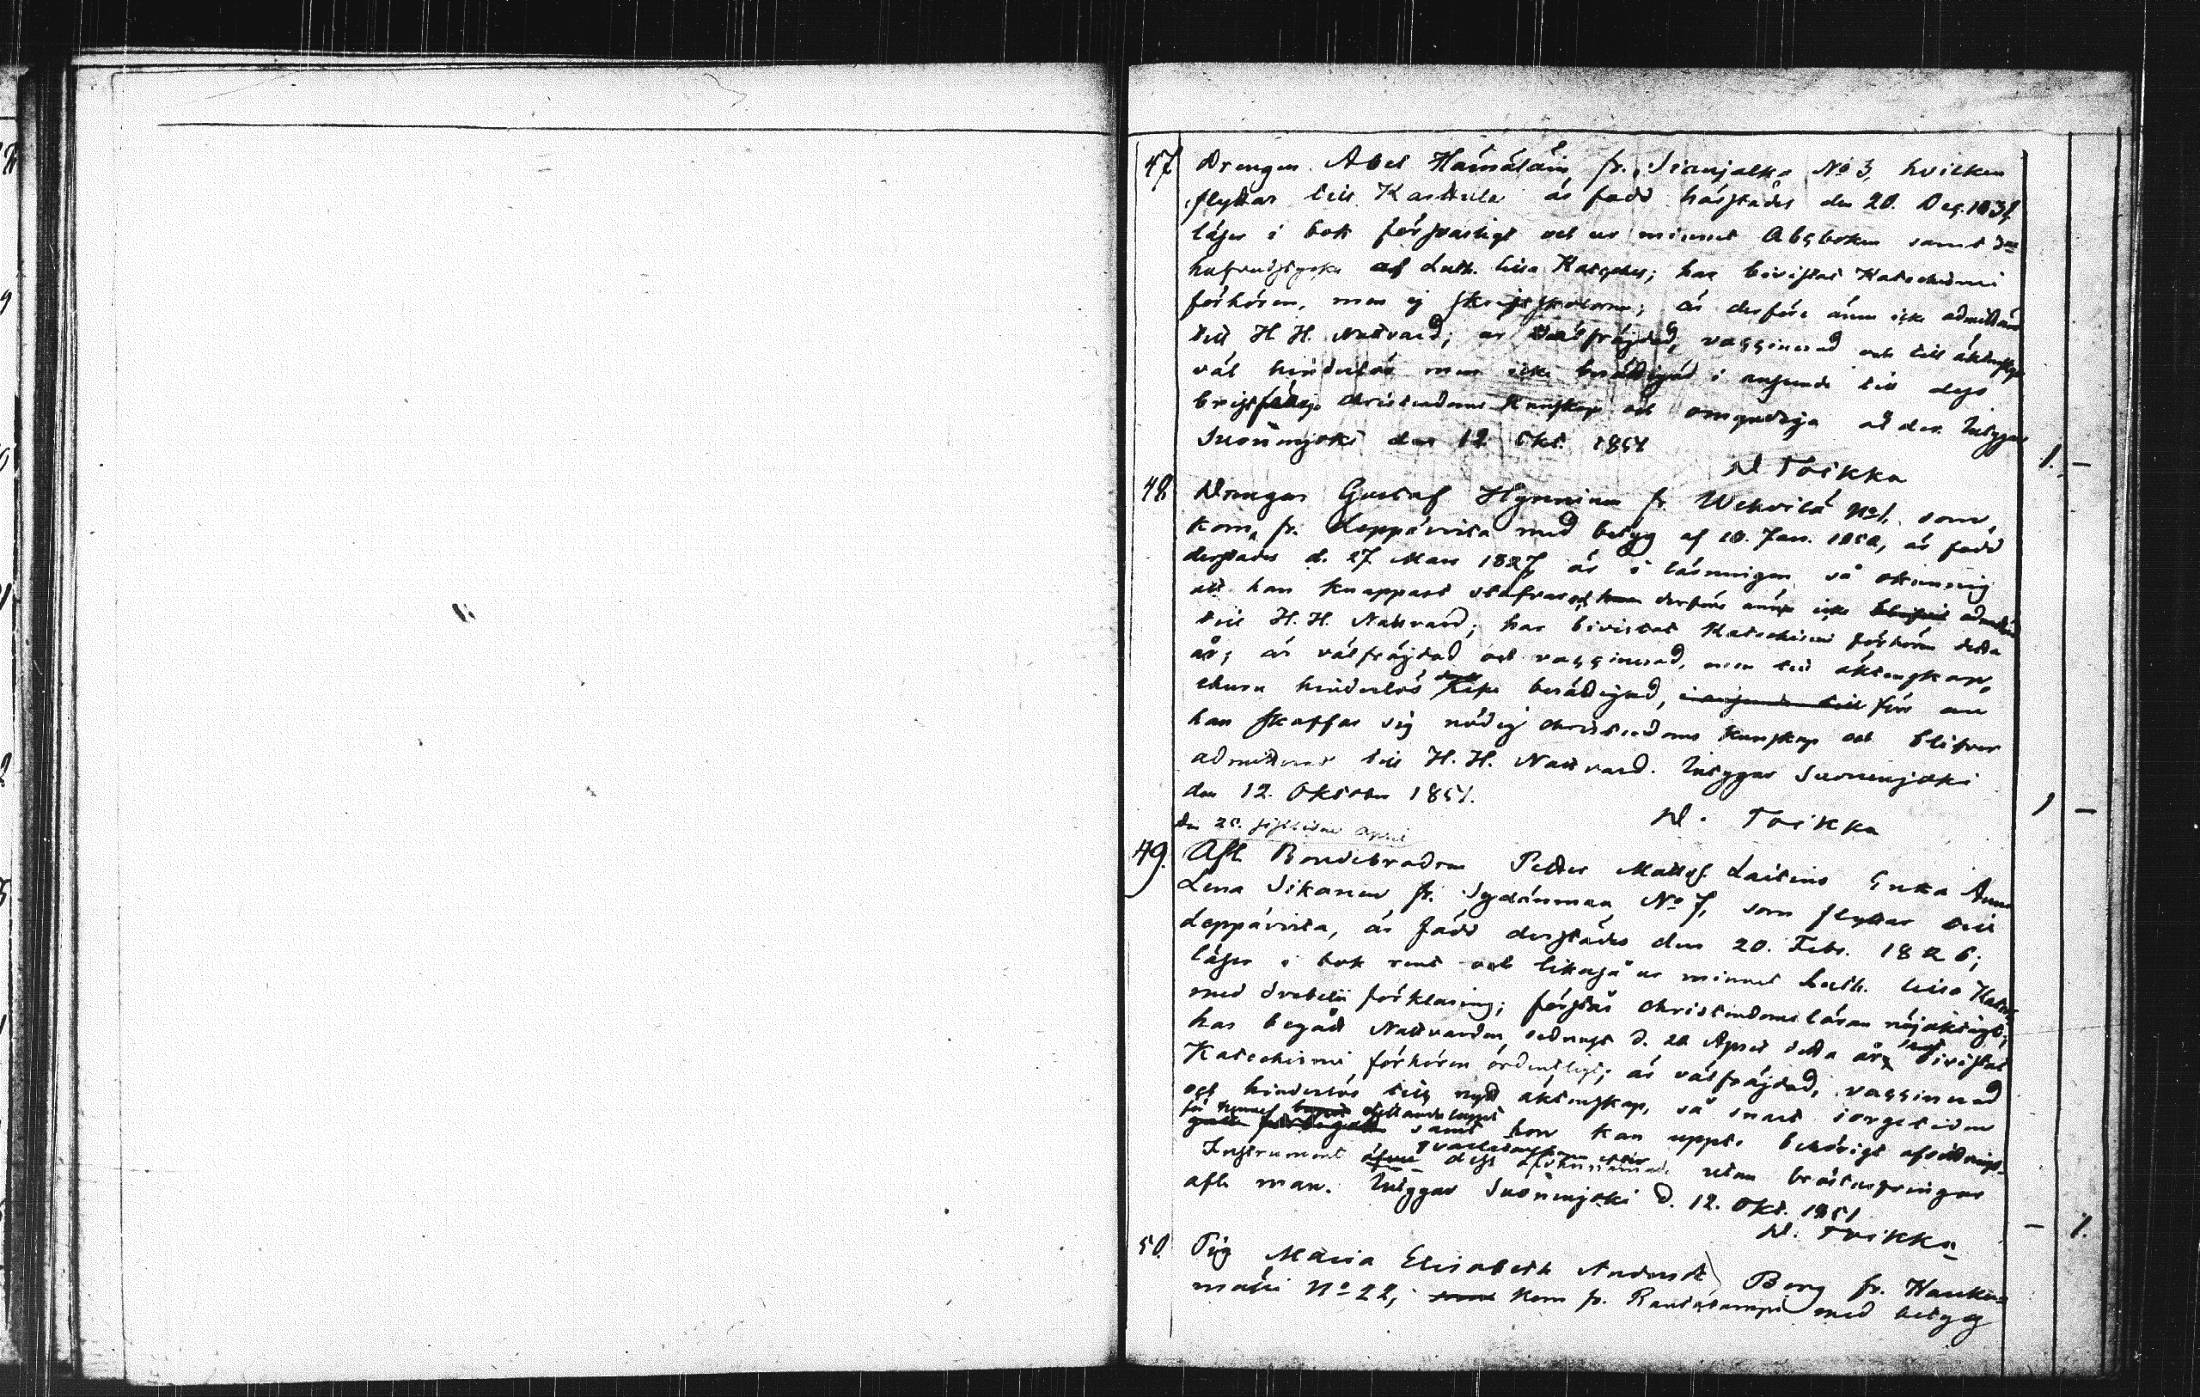 47 Drengen Abel Hämäläin fr. Sianjalka No 3, hvilken
flyttar till Karttula är född härstädes den 20. Dec. 1831,
läser i bok försvarligt och ur minnet Abcboken samt 3ne
hufvudstycke af Luth. lilla Kateches; har bivistat Katechismi
förhören, men ej skriftskolorna; är derföre ännu icke admitterad
till H. H. Nattvard; är välfräjdad, vaccinerad och till äktenskap
väl hinderlös men icke berättigad i anseende till dess
bristfällige christendoms kunskap och omyndiga ålder. Intygar
Suonnenjoki den 12. Okt. 1851
D Toikka 1. —
48 Drengen Gustaf Hynninen fr. Wehvilä No 1. som
kom fr. Leppävirta med betyg af 10. Jan. 1850, är född
derstädes d. 27 Mars 1827, är i läsningen så okunnig
att han knappast stafvar och derföre ännu icke admitterad
till H. H. Nattvard; har bivistat Katechismi förhören detta
år; är välfräjdad och vaccinerad, men till äktenskap,
ehuru hinderlös dock icke berättigad, i anseende till förr än
han skaffar sig nödig christendoms kunskap och blifver
admitterad till H. H. Nattvard. Intygar Suonnenjoki
den 12. Oktober 1851.
D. Toikka 1 —
den 20. sistledne April
49. Afl. Bondebrodren Petter Mattsf. Laitins Enka Anna
Lena Sikanen fr. Sydänmaa No 7, som flyttar till
Leppävirta, är född derstädes den 20. Febr. 1826;
läser i bok rent och likaså ur minnet Luth. lilla Katech.
med Svebelii förklaring; förstår christendomsläran nöjaktigt;
har begått Nattvarden sednast d. 20 April detta år, samt bivistat
Katechismi förhören ordentligt; är välfräjdad, vaccinerad
och hinderlös till nytt äktenskap, så snart sorgetiden
för hennes tilländalupit
samt hon kan uppte behörigt afvittrings-
Instrument efter dess utan bröstarfvingar
afl. man. Intygar Suonnenjoki d. 12. Okt. 1851
D. Toikka — 1.
50. Pig Maria Elisabeth Andersdr Borg fr. Hanka-
mäki No 22, som kom fr. Rautalampi med betyg